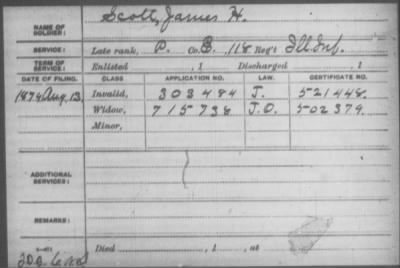 Scott, James H.
NAME OF SOLDIER:
SERVICE: Late rank, P. Co. B, 118 Reg't Ill. Inf.
TERM OF SERVICE: Enlisted , 1 Discharged , 1
DATE OF FILING. CLASS APPLICATION NO. LAW. CERTIFICATE NO.
1874 Aug. 13, Invalid, 303484 J. 521448.
Widow, 715738 J.O. 502379.
Minor,
ADDITIONAL SERVICES:
REMARKS:
Died , 1 , at